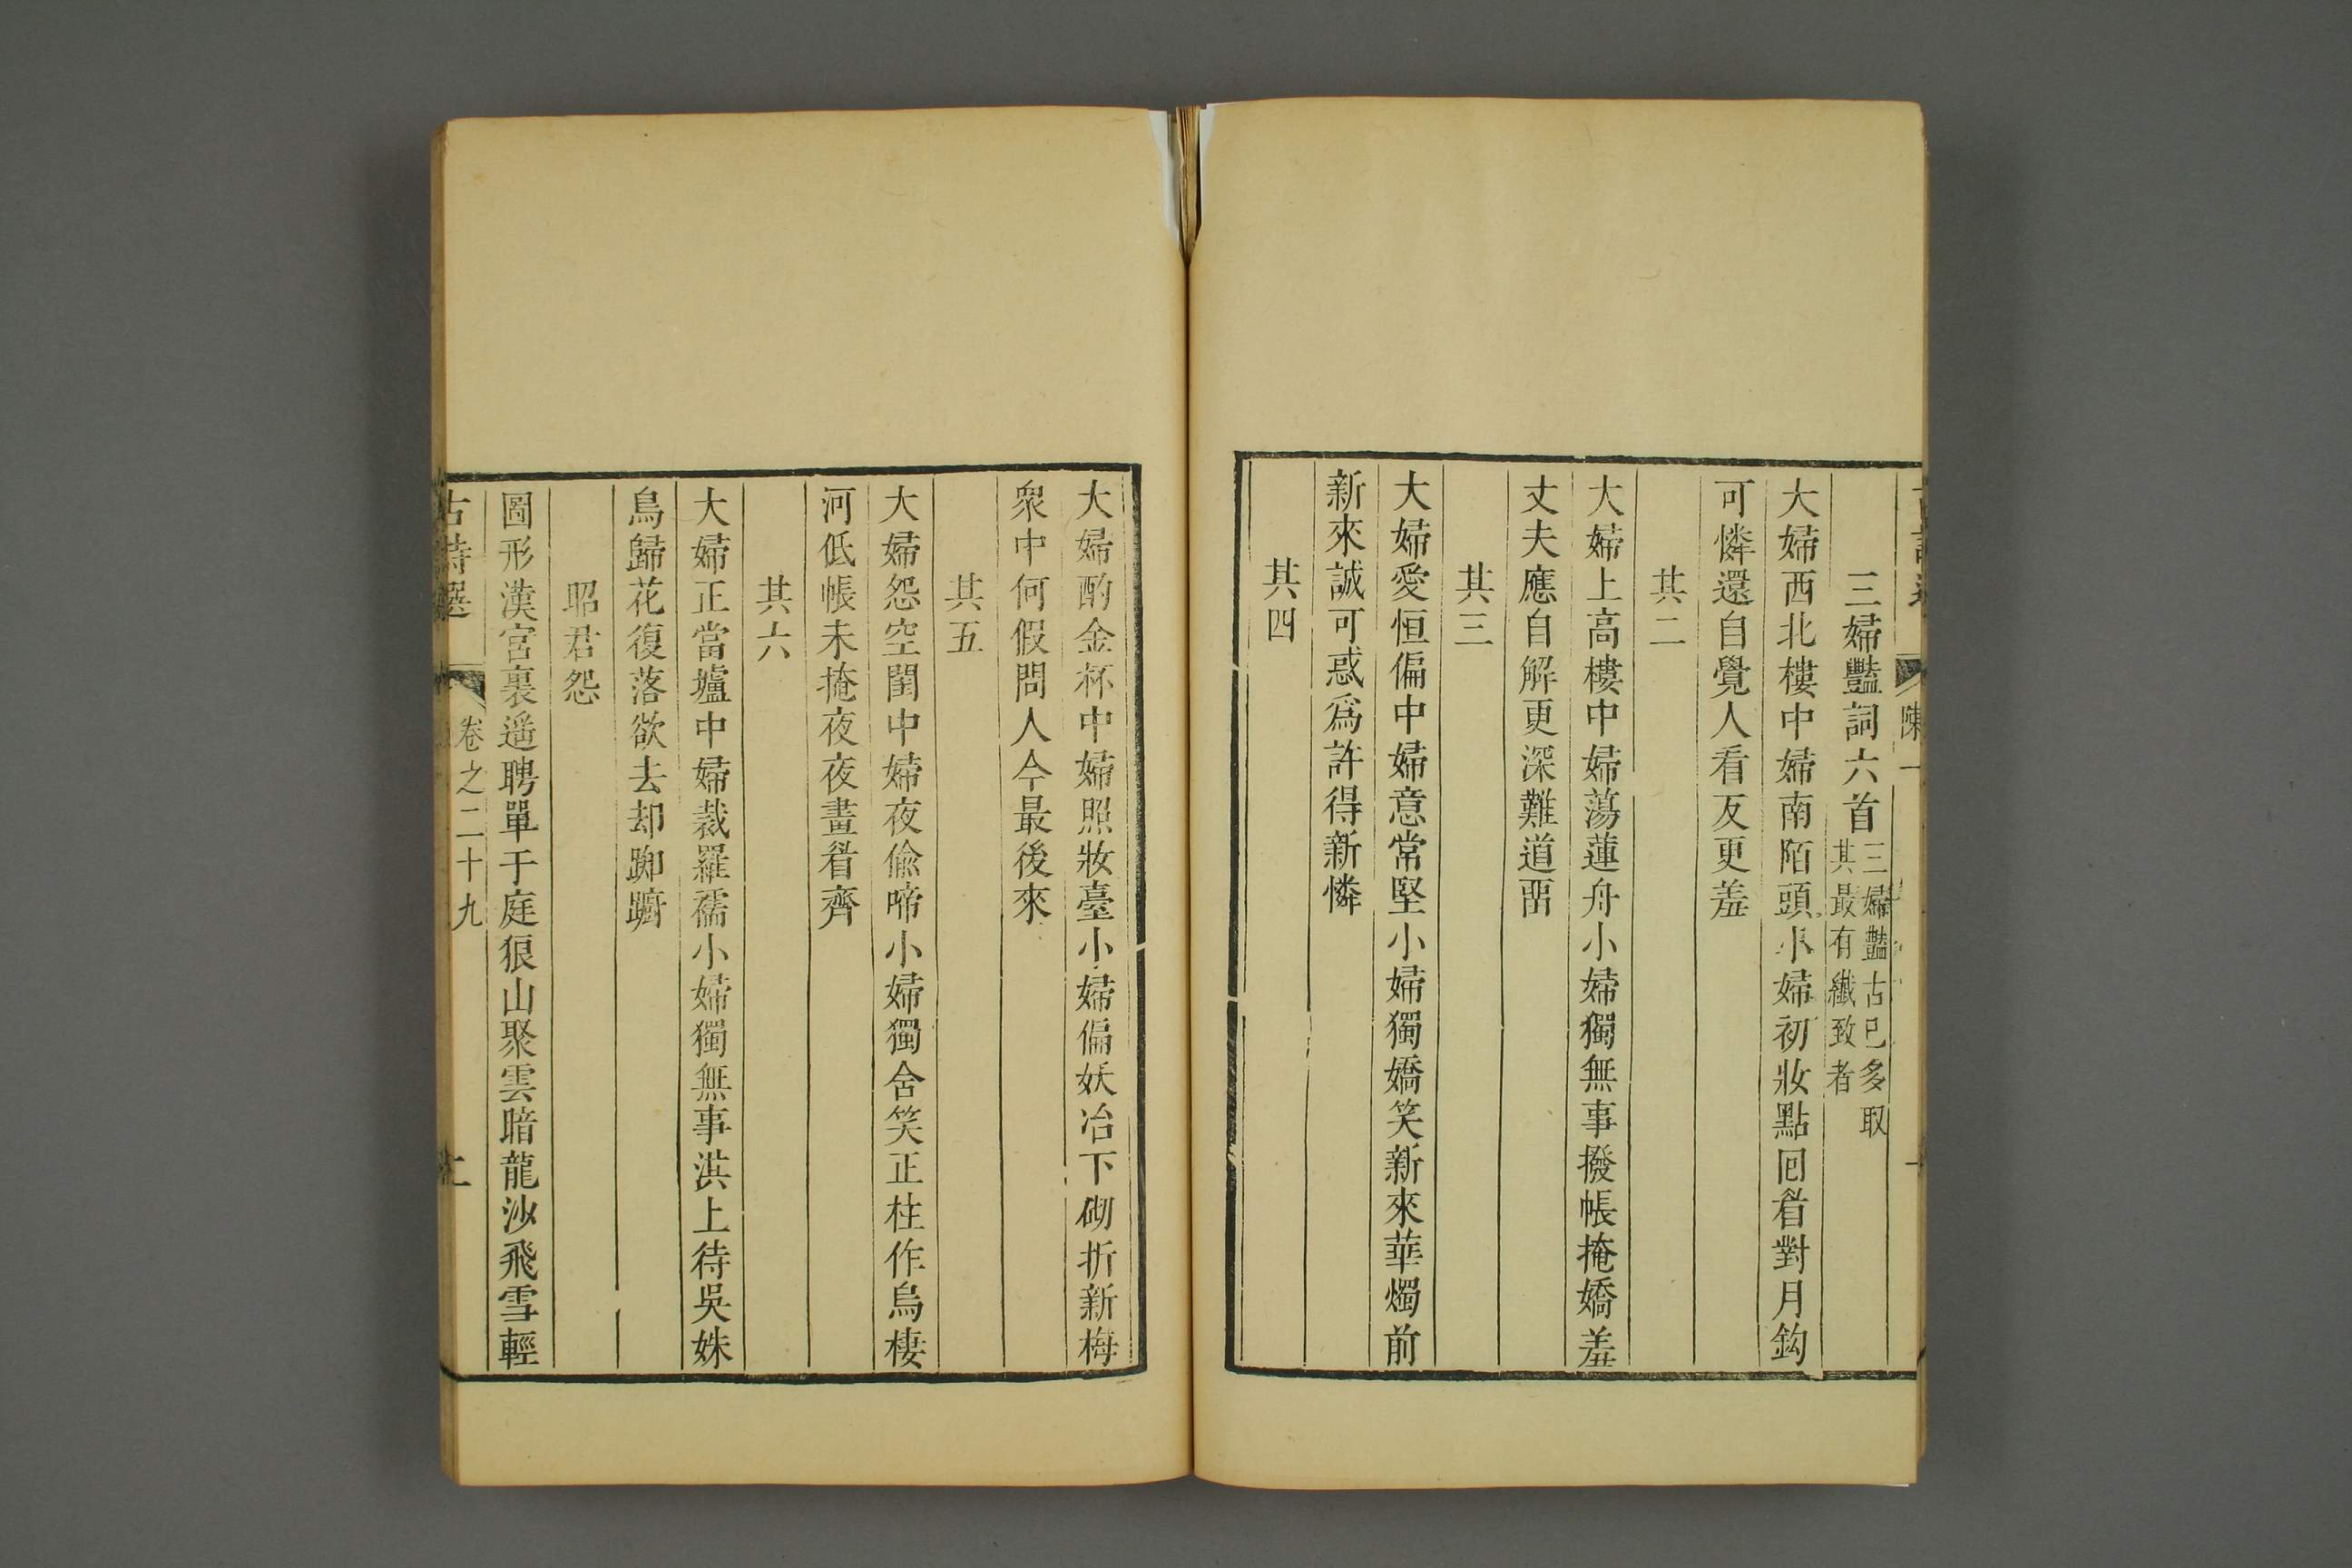 三婦豔詞六首
三婦豔古已多取
其最有纖致者
大婦西北樓中婦南陌頭小婦初妝點回眉對月鈎
可憐還自覺人看反更羞
其二
大婦上高樓中婦蕩蓮舟小婦獨無事撥帳掩嬌羞
丈夫應自解更深難道畱
其三
大婦愛恒偏中婦意常堅小婦獨嬌笑新來華燭前
新來誠可惑爲許得新憐
其四
大婦酌金杯中婦照妝臺小婦偏妖冶下砌折新梅
衆中何假問人今最後來
其五
大婦怨空閨中婦夜偷啼小婦獨含笑正柱作烏棲
河低帳未掩夜夜畫眉齊
其六
大婦正當壚中婦裁羅襦小婦獨無事淇上待吳姝
鳥歸花復落欲去却踟躕
昭君怨
圖形漢宮裏遥聘單于庭狼山聚雲暗龍沙飛雪輕
古詩選
卷之二十九